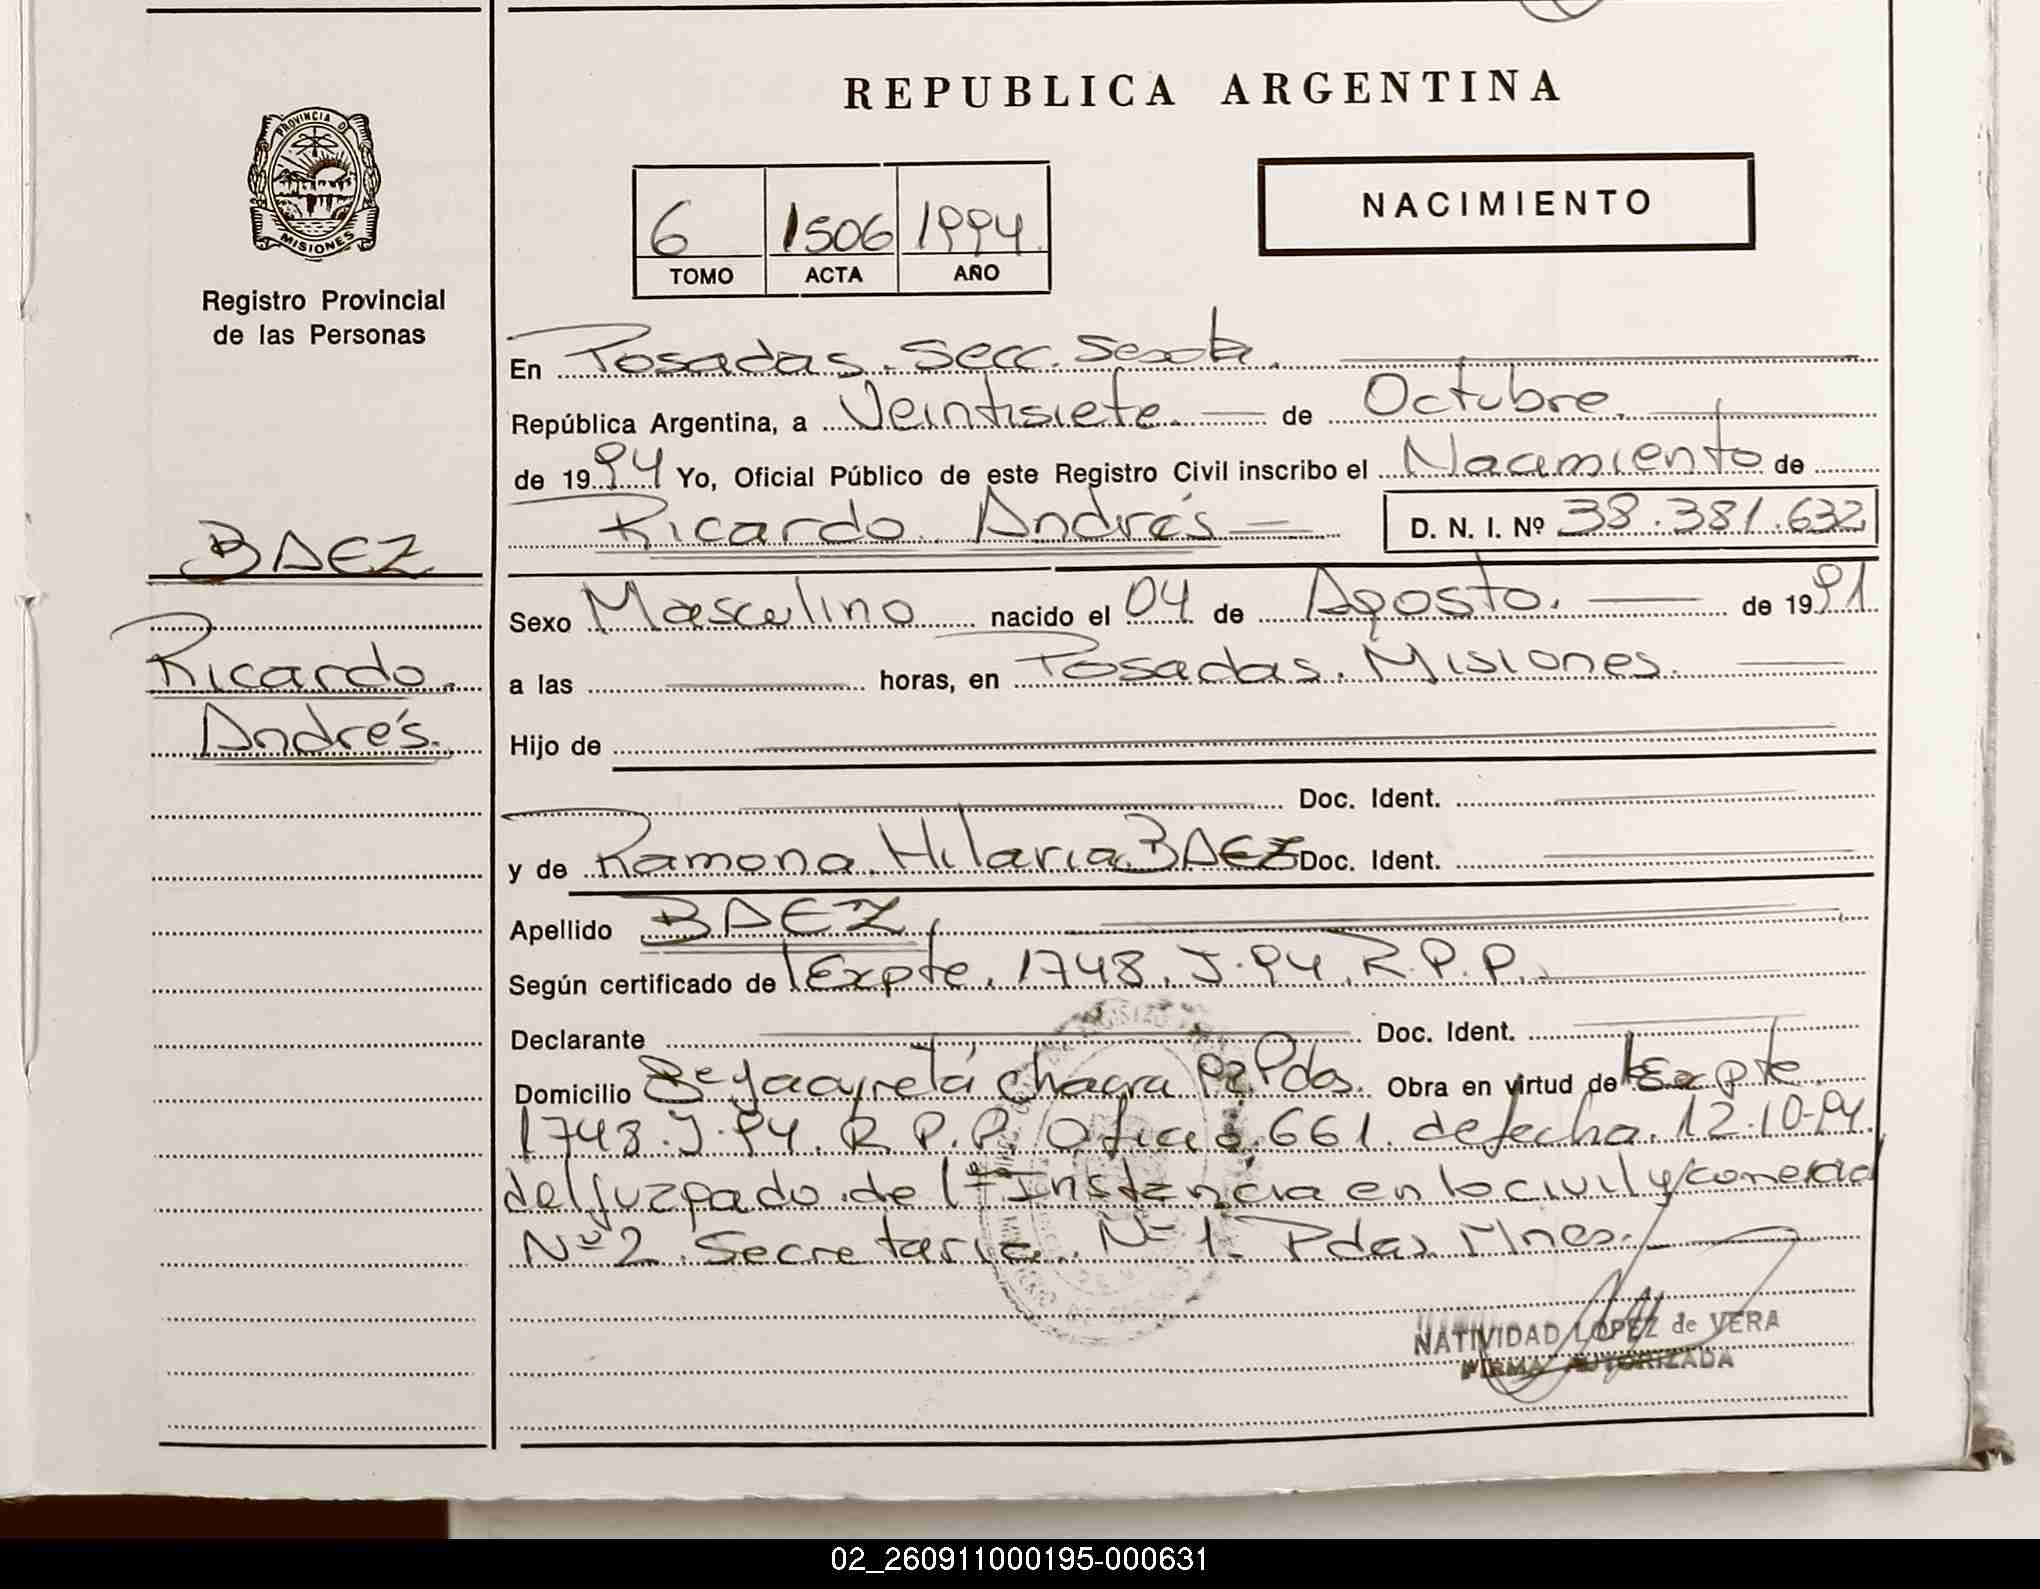 REPUBLICA ARGENTINA
PROVINCIA DE
MISIONES
Registro Provincial
de las Personas
6 1506 1994
TOMO ACTA AÑO
NACIMIENTO
BAEZ
Ricardo
Andrés.
En Posadas. Secc. Sexta.
República Argentina, a Veintisiete. de Octubre.
de 1994 Yo, Oficial Público de este Registro Civil inscribo el Nacimiento de
Ricardo Andrés D. N. I. Nº 38.381.632
Sexo Masculino nacido el 04 de Agosto. de 1991
a las horas, en Posadas. Misiones.
Hijo de
Doc. Ident.
y de Ramona Hilaria BAEZ Doc. Ident.
Apellido BAEZ
Según certificado de Expte. 1748. J. 94. R.P.P.
Declarante Doc. Ident.
Domicilio chacra Pdas. Obra en virtud de Expte
1748. J. 94. R.P.P. Oficio 661. de fecha. 12.10-94.
del Juzgado de 1ª Instancia en lo civil y comercial
Nº 2. Secretaria. Nº 1. Pdas Mnes.
NATIVIDAD LOPEZ de VERA
FIRMA AUTORIZADA
02_260911000195-000631